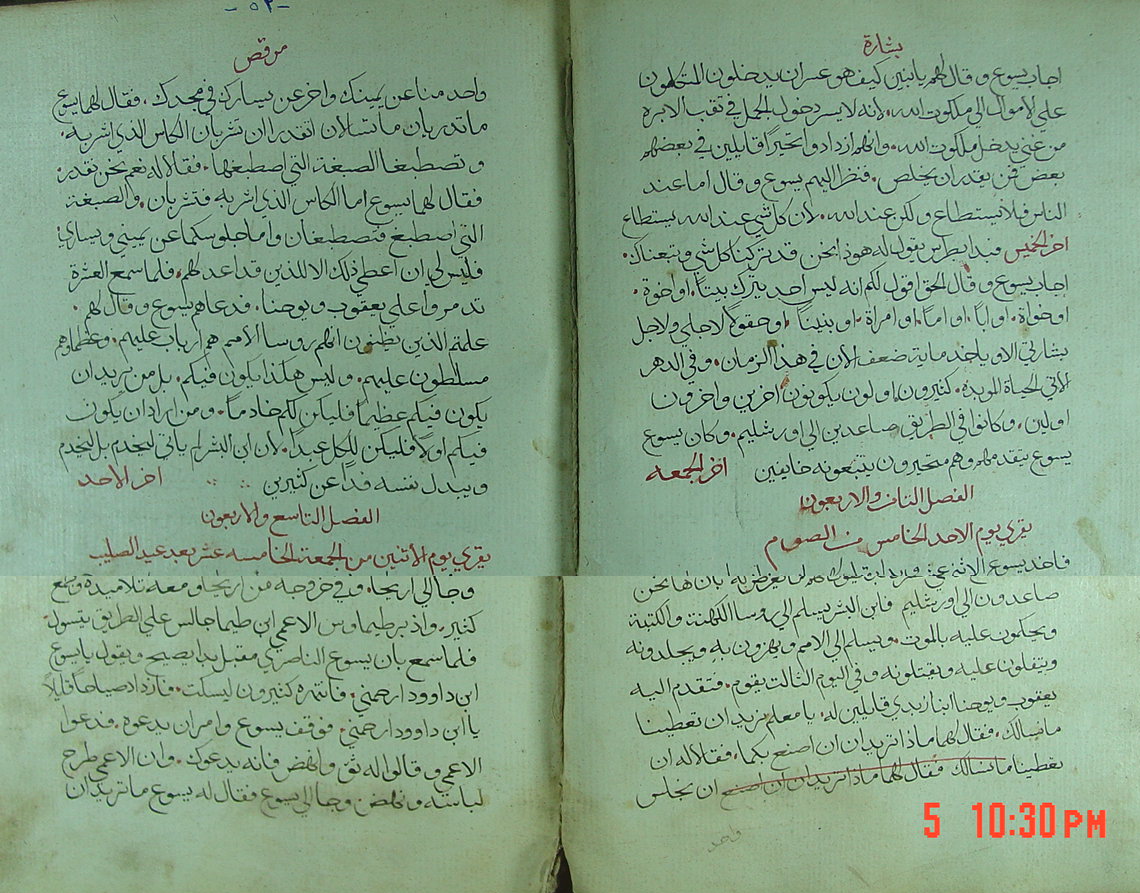 بشارة
اجاب يسوع وقال لهم يا بنين كيف هو عسر ان يدخلون المتكلون
علي الاموال الي ملكوت الله. لانه لايسر دخول الجمل في ثقب الابرة
من غني يدخل ملكوت الله. وانهم ازدادوا تحيرًا قايلين في بعضهم
بعض فمن يقدر ان يخلص. فنظر اليهم يسوع وقال اما عند
الناس فلا يستطاع ولكن عند الله. لان كل شي عند الله يستطاع
اخر الخميس فبدا بطرس يقول له هوذا نحن قد تركنا كل شي وتبعناك.
اجاب يسوع وقال الحق اقول لكم انه ليس احد يترك بيتًا. او اخوة.
او خواة. او ابًا. او امًا. او امراة. او بنينًا. او حقولًا لاجلي ولاجل
بشارتي الا وياخد ماية ضعف الان في هدا الزمان. وفي الدهر
الاتي الحياة الموبدة. كثيرون اولون يكونون اخرين واخرون
اولين. وكانوا في الطريق صاعدين الي اورشليم. وكان يسوع
يسوع يتقدمهم وهم متحيرون يتبعونه خايفين اخر الجمعه
الفصل الثامن والاربعون
يقري يوم الاحد الخامس من الصوم
فاخد يسوع الاثنى عشر
صاعدون الي اورشليم فابن البشر يسلم الي روسا الكهنة والكتبة
ويحكمون عليه بالموت. ويسلم الي الامم ويهزون به ويجلدونه
ويتفلون عليه ويقتلونه وفي اليوم الثالت يقوم. فتقدم اليه
يعقوب ويوحنا ابنا زبدي قايلين له. يا معلم نريد ان تعطينا
ما نسالك. فقال لهما ماذا تريدان ان اصنع بكما. فقالا له ان
تعطينا ما نسالك فقال لهما ماذا تريدان ان اصنع ان نجلس
واحد
- ٥٢ -
مرقص
واحد منا عن يمينك واخر عن يسارك في مجدك. فقال لهما يسوع
ما تدريان ما تسالان اتقدرا ان تشربان الكاس الذي اشربه.
وتصطبغا الصبغة التي اصطبغها. فقالا له نعم نحن نقدر.
فقال لهما يسوع اما الكاس الذي اشربه فتشربان. والصبغة
التي اصطبغ فتصطبغان واما جلوسكما عن يميني ويساري
فليس لي ان اعطي ذلك الا للذين قد اعد لهم. فلما سمع العشرة
تدمروا علي يعقوب ويوحنا. فدعاهم يسوع وقال لهم.
علمتم الذين تظنون انهم روسا الامم هم ارباب عليهم. وعظماوهم
مسلطون عليهم. وليس هكذا يكون فيكم. بل من يريد ان
يكون فيكم عظيمًا فليكن لكم خادمًا. ومن اراد ان يكون
فيكم اولًا فليكن للكل عبدًا. لان ابن البشر لم ياتي ليخدم بل ليخدم
ويبدل نفسه فدًا عن كثيرين اخر الاحد
الفصل التاسع والاربعون
يقري يوم الاثنين من الجمعة الخامسه عشر بعد عيد الصليب
وجا الي اريحا. وفي خروجه من اريحا ومعه تلاميده وجمع
كثير. واذ برطيماوس الاعمي ابن طيما جالس علي الطريق يتسول
فلما سمع بان يسوع الناصري مقبل بدا يصيح ويقول يا يسوع
ابن داوود ارحمني. فانتهره كثيرون ليسكت. فازداد صياحًا قايلًا
يا ابن داوود ارحمني. فوقف يسوع وامر ان يدعوه. فدعوا
الاعمي وقالوا له ثق وانهض فانه يدعوك. وان الاعمي طرح
لباسه ونهض وجا الي يسوع فقال له يسوع ما تريد ان
5 10:30 PM